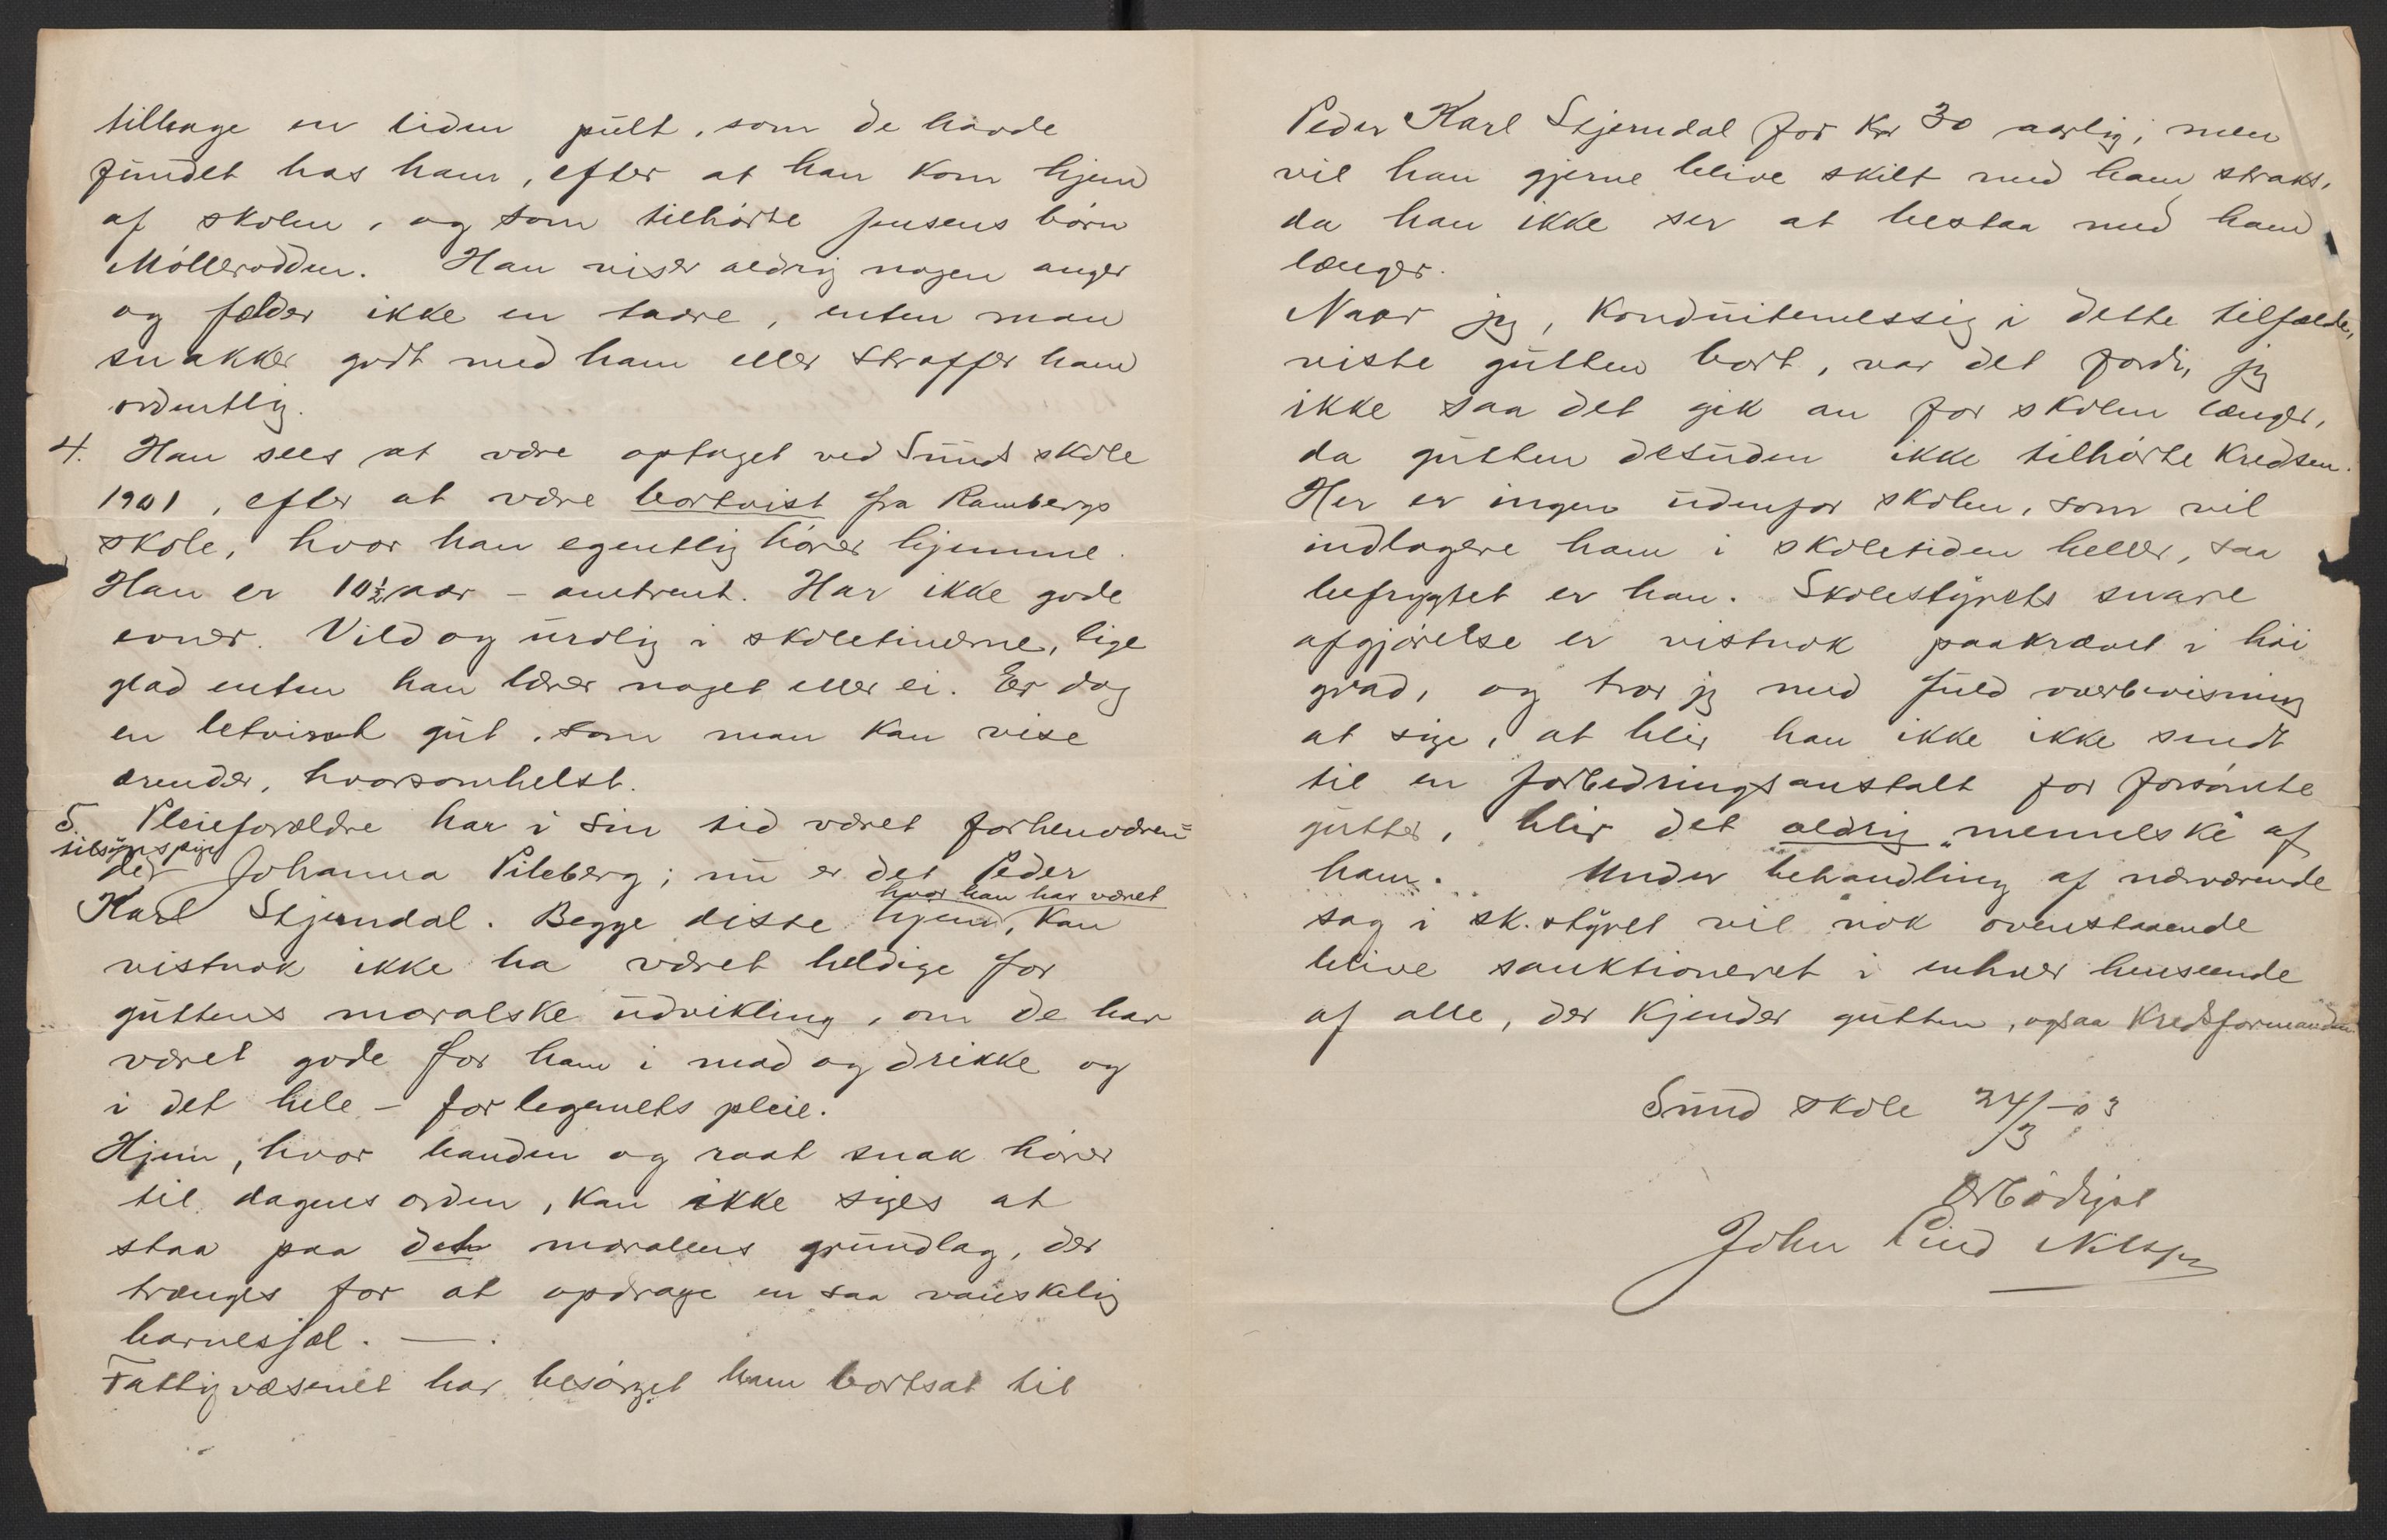 tilbage en liden pult, som de havde
fundet hos ham, efter at han kom hjem
af skolen, og som tilhørte Jensens børn
Møllerodden. Han viser aldrig nogen anger
og fælder ikke en taare, enten man
snakker godt med ham eller straffer ham
ordentlig.
4. Han sees at være optaget ved Sund skole
1901, efter at være bortvist fra Rambergs
skole, hvor han egentlig hører hjemme.
Han er 10½ aar – omtrent. Har ikke gode
evner. Vild og urolig i skoletimerne, lige
glad enten han lærer noget eller ei. Er dog
en letvindt gut, som man kan vise
ærender, hvorsomhelst.
5. Pleieforældre har i sin tid været forhenværen=
de tilsynspige Johanna Pileberg; nu er det Peder
Karl Stjerndal. Begge disse hjem, hvor han har været, kan
vistnok ikke ha været heldige for
guttens moralske udvikling, om de har
været gode for ham i mad og drikke og
i det hele – for legemets pleie.
Hjem, hvor banden og raat snak hører
til dagens orden, kan ikke siges at
staa paa det moralens grundlag, der
trænges for at opdrage en saa vanskelig
barnesjæl. —.
Fattigvæsenet har besørget ham bortsat til
Peder Karl Stjerndal for Kr 30 aarlig; men
vil han gjerne blive skilt med ham straks,
da han ikke ser at bestaa med ham
længer.
Naar jeg, konduitemessig i dette tilfælde,
viste gutten bort, var det fordi, jeg
ikke saa det gik an for skolen længer,
da gutten desuden ikke tilhørte kredsen.
Her er ingen udenfor skolen, som vil
indlogere ham i skoletiden heller, saa
befrygtet er han. Skolestyrets snare
afgjørelse er vistnok paakrævet i høi
grad, og tror jeg med fuld overbevisning
at sige, at blir han ikke ikke sendt
til en forbedringsanstalt for forsømte
gutter, blir det aldrig "menneske" af
ham. Under behandling af nærværende
sag i sk.styret vil nok ovenstaaende
blive sanktioneret i enhver henseende
af alle, der kjender gutten, ogsaa kredsformanden
Sund skole 24/3-03
Ærbødigst
John Lind Nilssen